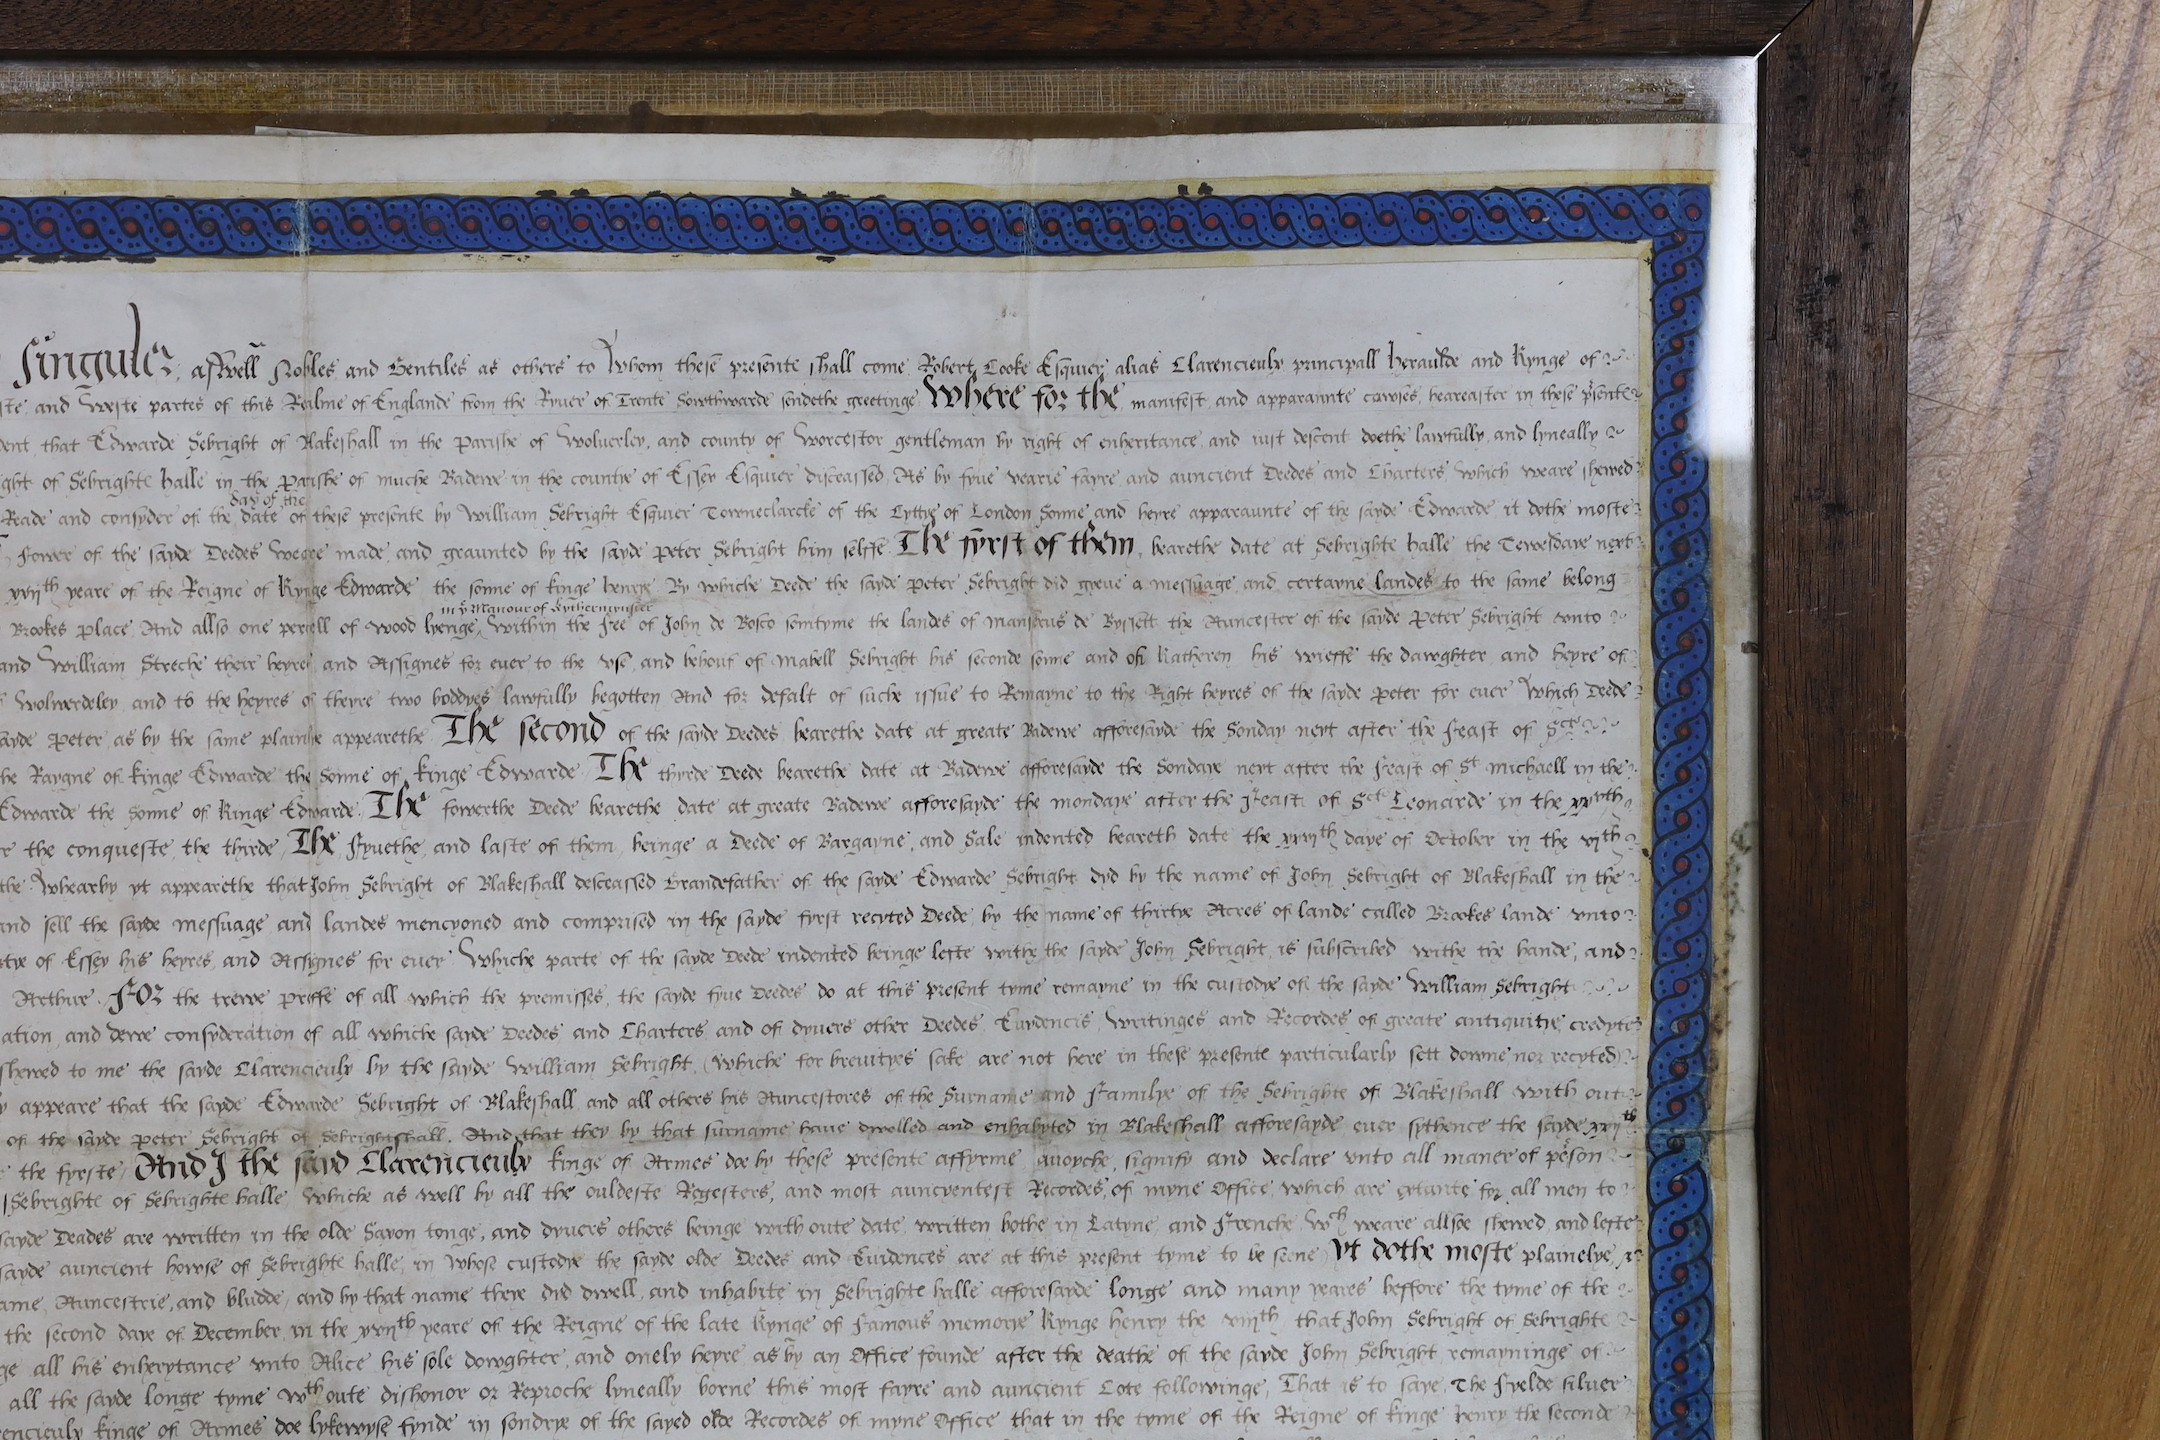 singuler, aswell Nobles and Gentiles as others to Whom these presente shall come Robert Cooke Esquier alias Clarencieulx principall Heraulde and Kynge of
and Weste partes of this Realme of Englande from the Ryver of Trente Sowthwarde sendethe greetinge Where for the manifest and apparannte cawses, heareafter in these p'sente
that Edwarde Sebright of Blakeshall in the parishe of Wolverley, and county of Worcestor gentleman by right of enheritance and iust descent doethe lawfully and lyneally
of Sebrighte halle in the Parishe of muche Badewe in the countye of Essex Esquier disceassed, As by fyue vearie fayre and auncient Deedes and Charters which weare shewed
day of the
Reade and consyder of the date of these presente by William Sebright Esquier Towneclarcke of the Cyttye of London Sonne and heyre apparaunte of the sayde Edwarde it dothe moste
Fower of the sayde Deedes weare made and graunted by the sayde Peter Sebright him selffe The fyrst of them, bearethe date at Sebrighte halle the Tewesdaye next
xvijth yeare of the Reigne of Kynge Edwarde the sonne of kinge henrye By whiche Deede the sayde Peter Sebright did geeve a messuage and certayne landes to the same belong
in ye Manour of Kythermynster
Brookes place And allso one percell of wood lyenge within the Fee of John de Bosco somtyme the landes of de Byssett the Auncester of the sayde Peter Sebright vnto
and William Streche their heyres and Assignes for euer to the vse and behouf of Mabell Sebright his seconde sonne and of Katheren his wieffe the dawghter and heyre of
Wolwerdeley and to the heyres of theyre two boddyes lawfully begotten And for defalt of suche issue to Remayne to the Right heyres of the sayde Peter for euer Which Deede
Peter as by the same plainlye appearethe The second of the sayde Deedes bearethe date at greate Badewe afforesayde the Sonday next after the Feast of Scte
Raygne of kinge Edwarde the Sonne of kinge Edwarde The thyrde Deede bearethe date at Badewe afforesayde the Sondaye next after the Feast of St Michaell in the
Edwarde the Sonne of Kinge Edwarde. The fowerthe Deede bearethe date at greate Badewe afforesayde the mondaye after the Feast of Scte Leonarde in the
the conqueste, the thirde, The Fyuethe and laste of them, beinge a Deede of Bargayne and Sale indented beareth date the xxijth daye of October in the vjth
Whearby yt appearethe that John Sebright of Blakeshall desceassed Grandefather of the sayde Edwarde Sebright dyd by the name of John Sebright of Blakeshall in the
and sell the sayde messuage and landes mencyoned and comprised in the sayde fyrst recyted Deede by the name of thirtye Acres of lande called Brookes lande vnto
of Essex his heyres and Assignes for euer Whiche parte of the sayde Deede indented beinge lefte withe the sayde John Sebright is subscribed withe the hande, and
Arthur. For the trewe prooffe of all which the premisses, the sayde fyue Deedes do at this present tyme remayne in the custodye of the sayde William Sebright
and dewe consyderation of all whiche sayde Deedes and Charters and of dyuers other Deedes Euydencis Writinges and Recordes of greate antiquitie, credyte
shewed to me the sayde Clarencieulx by the sayde William Sebright, (whiche for breuityes sake are not here in these presente particularly sett downe nor recyted)
appeare that the sayde Edwarde Sebright of Blakeshall and all others his Auncestores of the Surname and Familye of the Sebrighte of Blakeshall with out
of the sayde Peter Sebright of Sebrightshall, And that they by that surname haue dwelled and enhabyted in Blakeshall afforesayde euer sythence the sayde xvijth
the fyrste, And I the sayd Clarencieulx kinge of Armes doe by these presente affyrme avoyche, signify and declare vnto all maner of p'son
Sebrighte of Sebrighte halle whiche as well by all the ouldeste Regesters, and most auncyentest Recordes, of myne Office, which are for all men to
sayde Deades are written in the olde Saxon tonge, and dyuers others beinge with oute date written bothe in Latyne and Frenche Wch weare allsoe shewed and lefte
sayde auncient howse of Sebrighte halle, in whose custodye the sayde olde Deedes and Euidences are at this present tyme to be seene) Yt dothe moste plainelye,
Auncestrie, and bludde, and by that name there did dwell and inhabite in Sebrighte halle afforesayde longe and many yeares beffore the tyme of the
the second daye of December in the xviijth yeare of the Reigne of the late Kynge of Famous memorye Kynge henry the viijth that John Sebright of Sebrighte
all his enherytance vnto Alice his sole dowghter, and onely heyre as by an Office founde after the deathe of the sayde John Sebright remayninge of
all the sayde longe tyme wth oute dishonor or Reproche lyneally borne this most fayre and auncient Cote followinge, That is to saye, The Fyelde siluer
kinge of Armes doe lykewyse fynde in sondrye of the sayed olde Recordes of myne Office that in the tyme of the Reigne of kinge henry the seconde